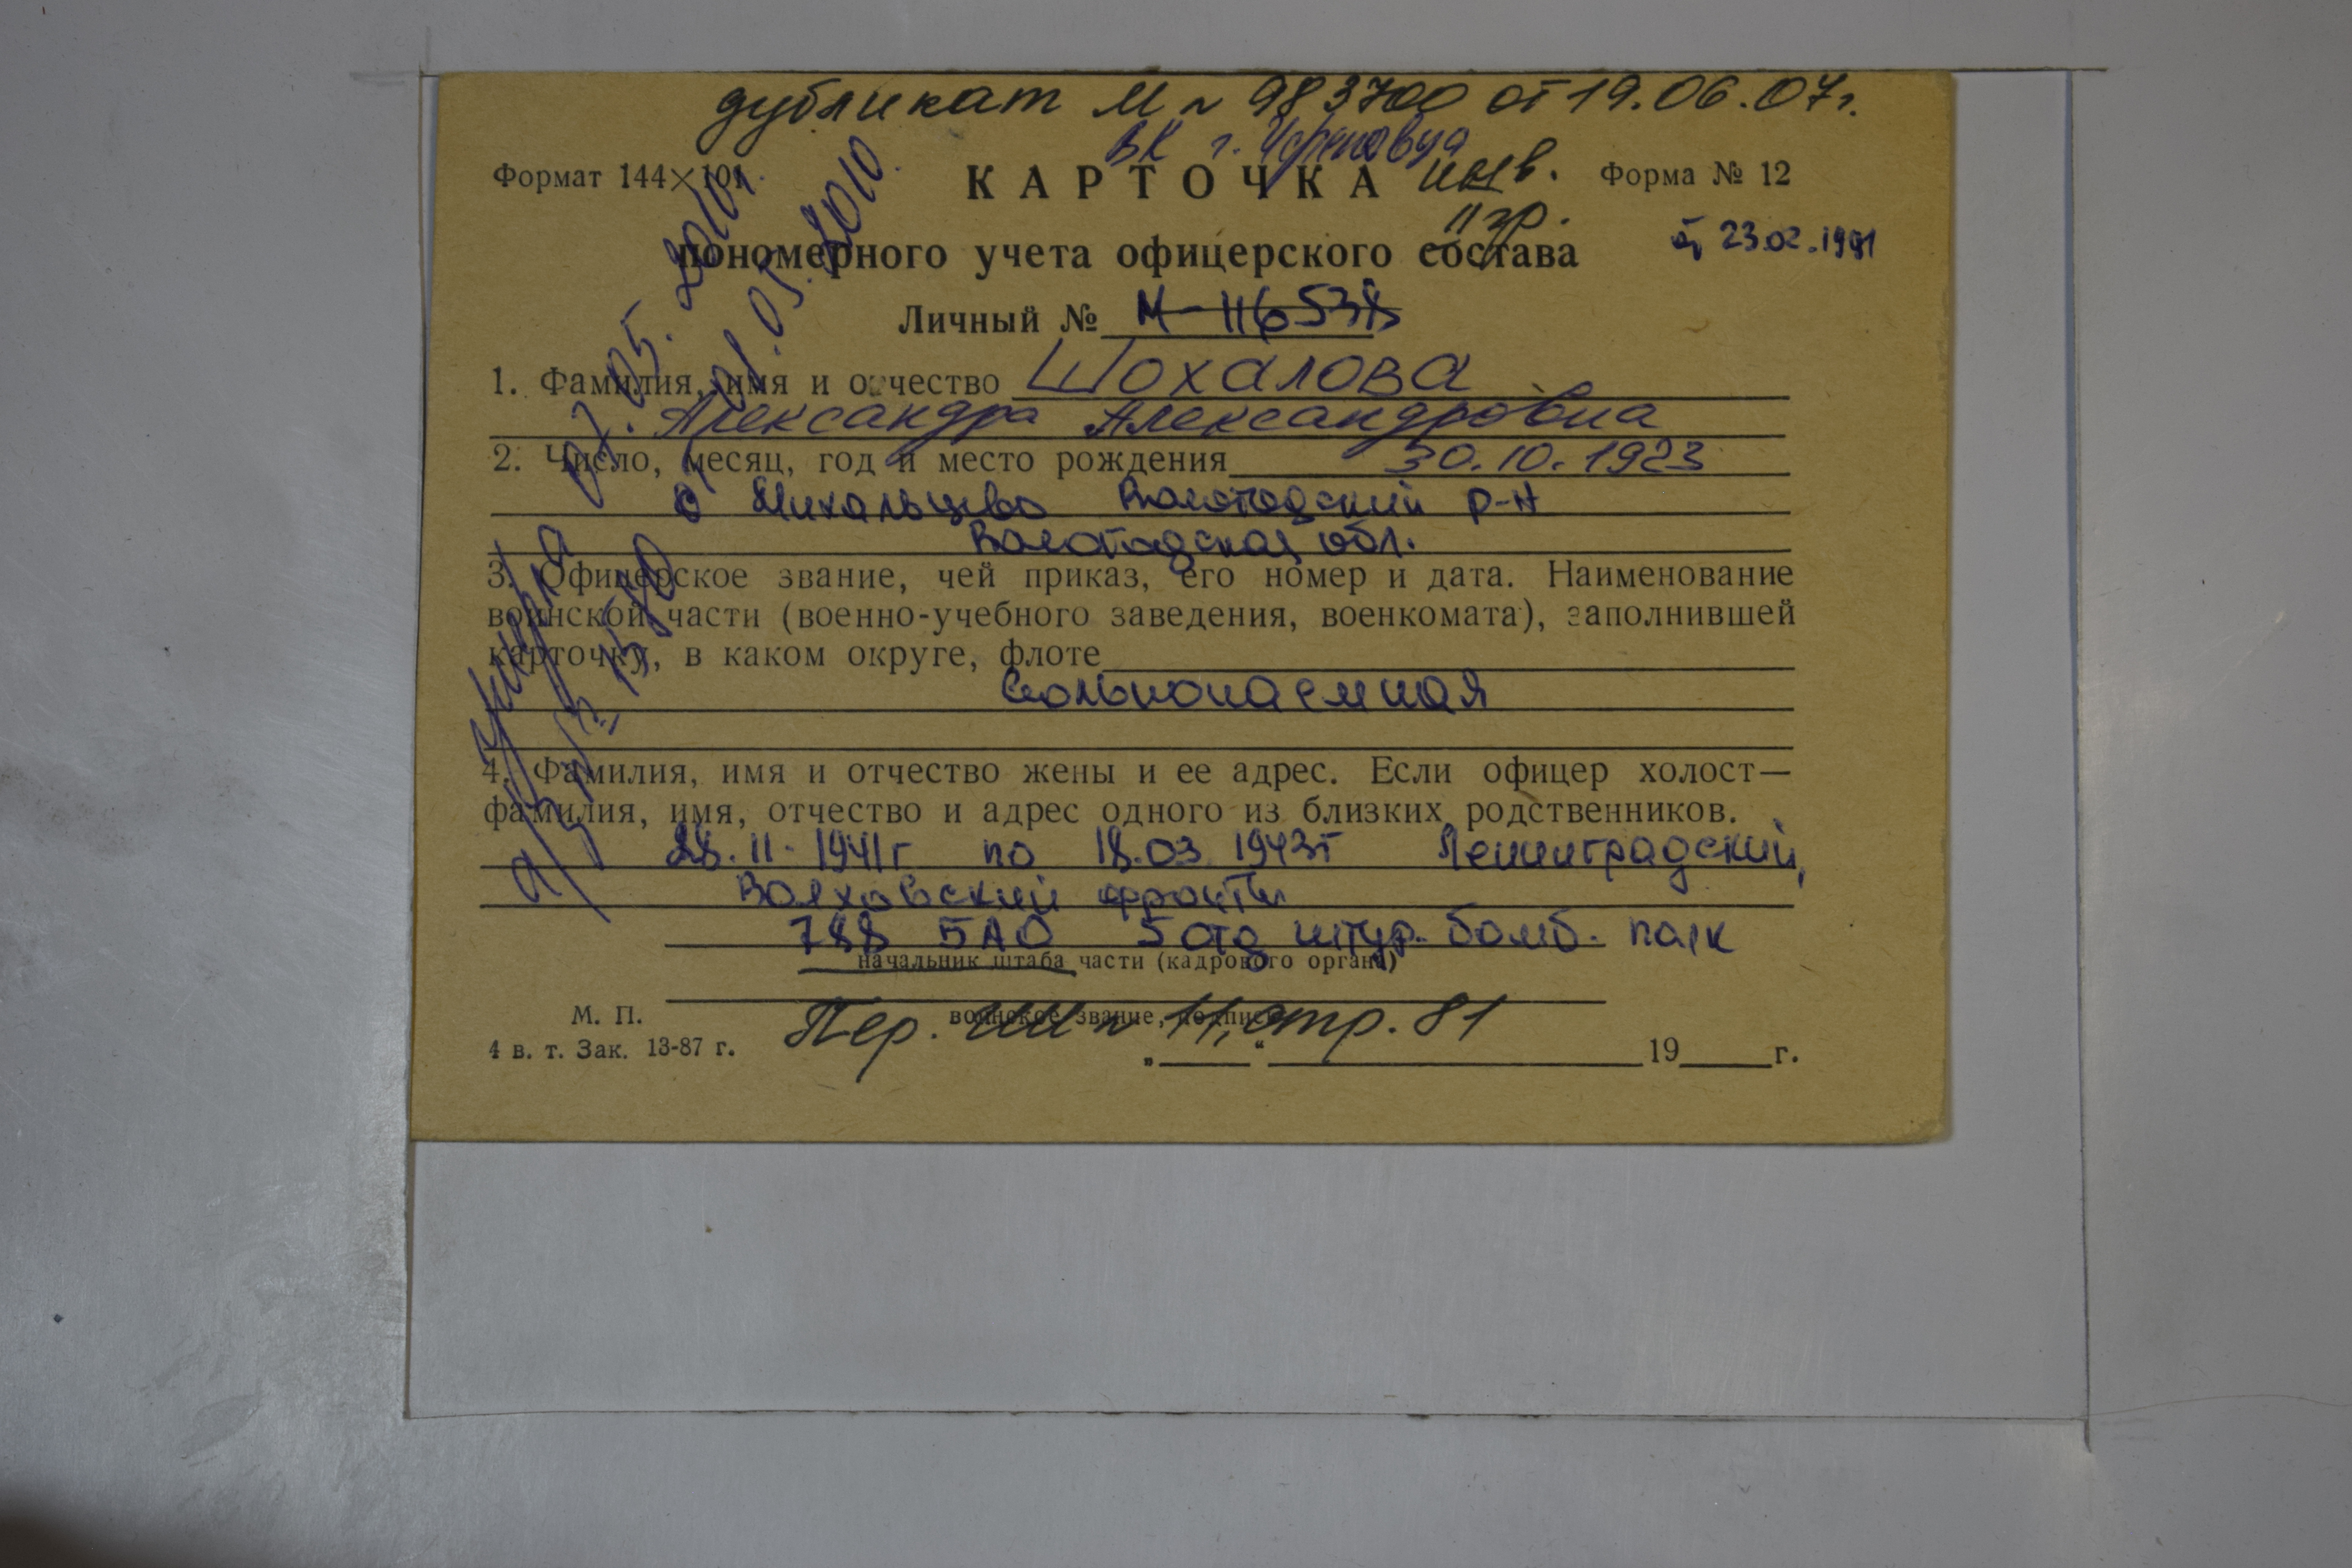 дубликат М N 983700 от 19.06.07г.
ВК г. Череповца
Формат 144×101
КАРТОЧКА
инв.
Форма № 12
II гр.
пономерного учета офицерского состава
23.02.1991
Личный № М-116538
1. Фамилия, имя и отчество Шохалова
Александра Александровна
2. Число, месяц, год и место рождения 30.10.1923
Михальцево Вологодский р-н
Вологодская обл.
3. Офицерское звание, чей приказ, его номер и дата. Наименование
воинской части (военно-учебного заведения, военкомата), заполнившей
карточку, в каком округе, флоте
вольнонаемная
4. Фамилия, имя и отчество жены и ее адрес. Если офицер холост—
фамилия, имя, отчество и адрес одного из близких родственников.
28.11.1941г по 18.03 1943г Ленинградский,
Волховский фронты
788 БАО 5 отд штур. бомб. полк
начальник штаба части (кадрового органа)
М. П.
воинское звание, подпись
Пер. N 11, стр. 81
4 в. т. Зак. 13-87 г.
„ “ 19 г.
умерла
05.2010г.
01.05.2010.